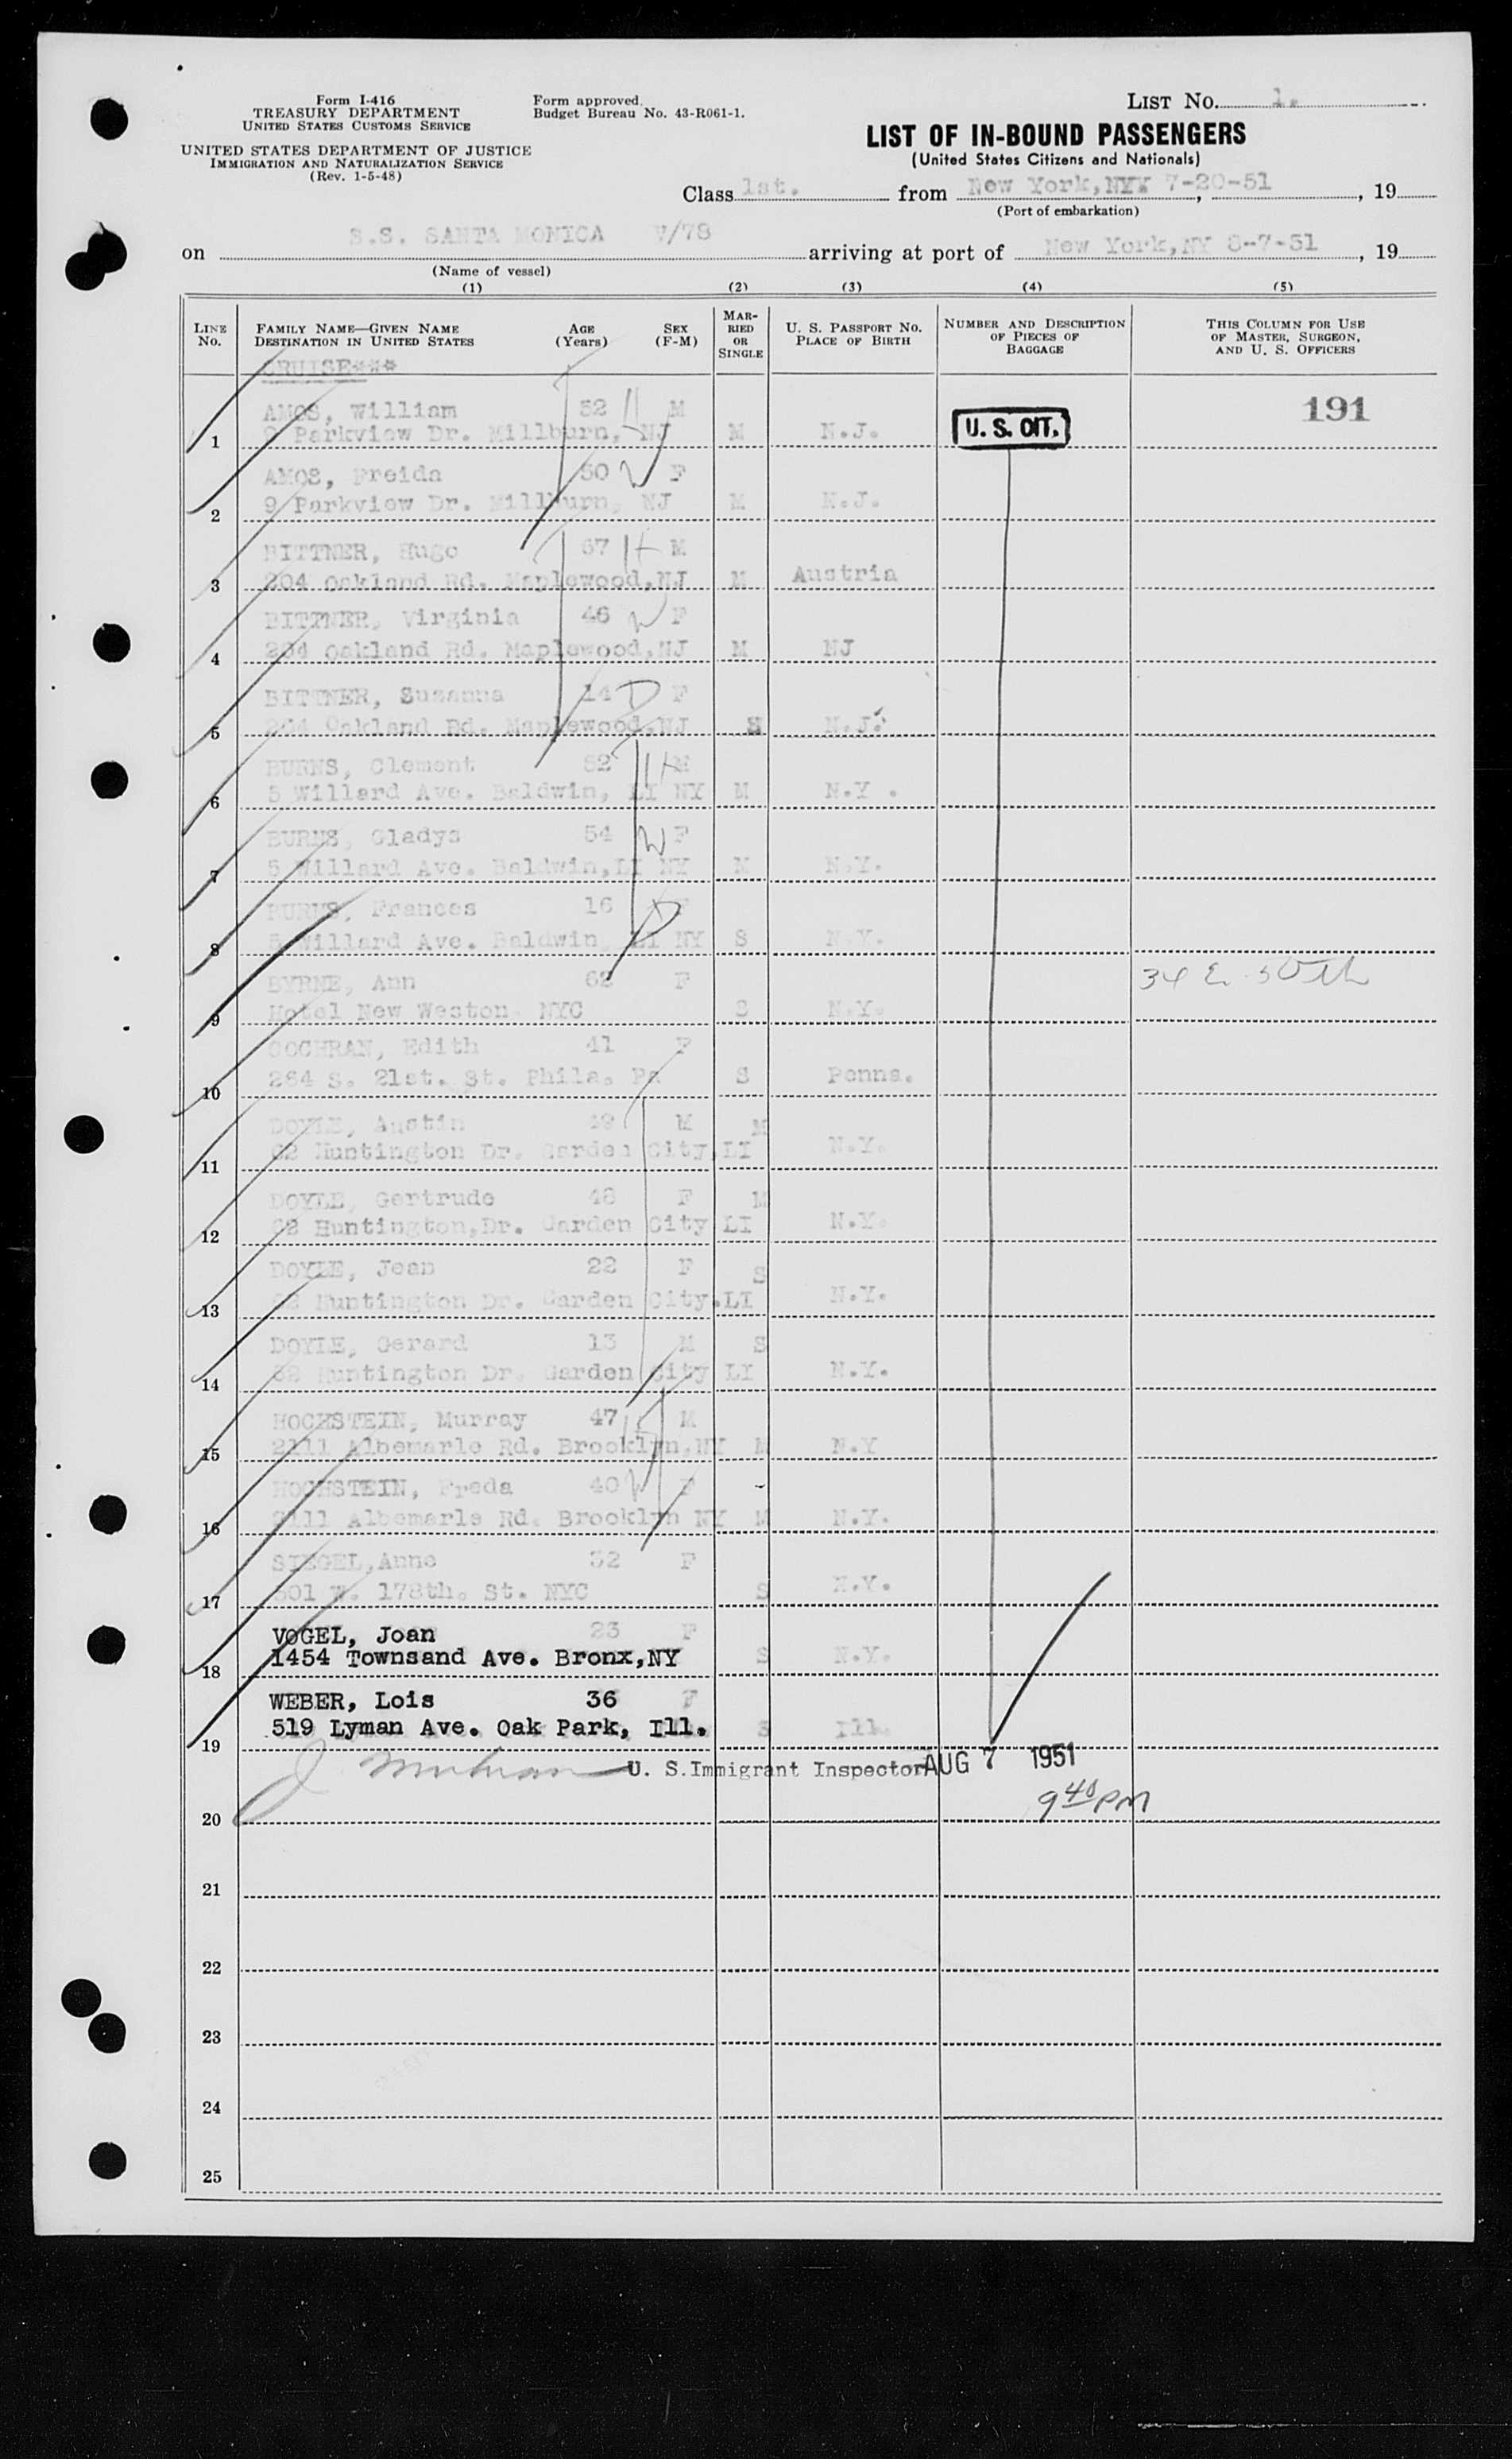 Form I-416
TREASURY DEPARTMENT
UNITED STATES CUSTOMS SERVICE
UNITED STATES DEPARTMENT OF JUSTICE
IMMIGRATION AND NATURALIZATION SERVICE
(Rev. 1-5-48)
Form approved.
Budget Bureau No. 43-R061-1.
LIST No. 1.
LIST OF IN-BOUND PASSENGERS
(United States Citizens and Nationals)
Class 1st. from New York, NYX 7-20-51, 19
(Port of embarkation)
on S.S. SANTA MONICA V/78 arriving at port of New York,NY 8-7-51, 19
(Name of vessel)
(1) (2) (3) (4) (5)
LINE No. FAMILY NAME—GIVEN NAME DESTINATION IN UNITED STATES AGE (Years) SEX (F-M) MARRIED OR SINGLE U. S. PASSPORT NO. PLACE OF BIRTH NUMBER AND DESCRIPTION OF PIECES OF BAGGAGE THIS COLUMN FOR USE OF MASTER, SURGEON, AND U. S. OFFICERS
CRUISE***
AMOS, William 52 H M 191
1 9 Parkview Dr. Millburn, NJ M N.J. U. S. CIT.
AMOS, Freida 50 W F
2 9 Parkview Dr. Millburn, NJ M N.J.
BITTNER, Hugo 67 H M
3 204 Oakland Rd. Maplewood,NJ M Austria
BITTNER, Virginia 46 W F
4 204 Oakland Rd. Maplewood,NJ M NJ
BITTNER, Suzanna 14 D F
5 204 Oakland Rd. Maplewood,NJ N.J.
BURNS, Clement 52 H M
6 5 Willard Ave. Baldwin, LI NY M N.Y .
BURNS, Gladys 54 W F
7 5 Willard Ave. Baldwin,LI NY M N.Y.
BURNS, Frances 16 D F
8 5 Willard Ave. Baldwin, LI NY S N.Y.
BYRNE, Ann 62 F 34 E. 50th
9 Hotel New Weston NYC S N.Y.
COCHRAN, Edith 41 F
10 264 S. 21st. St. Phila. Pa S Penna.
DOYLE, Austin 49 M M
11 62 Huntington Dr. Garden City,LI N.Y.
DOYLE, Gertrude 48 F M
12 62 Huntington,Dr. Garden City LI N.Y.
DOYLE, Jean 22 F S
13 62 Huntington Dr. Garden City.LI N.Y.
DOYLE, Gerard 13 M S
14 62 Huntington Dr. Garden City LI N.Y.
HOCHSTEIN, Murray 47 H M
15 2111 Albemarle Rd. Brooklyn,NY M N.Y
HOCHSTEIN, Freda 40 W F
16 2111 Albemarle Rd. Brooklyn NY M N.Y.
SIEGEL,Anne 32 F
17 501 W. 178th. St. NYC S N.Y.
VOGEL, Joan 23 F
18 1454 Townsand Ave. Bronx,NY S N.Y.
WEBER, Lois 36 F
19 519 Lyman Ave. Oak Park, Ill. S Ill.
U. S.Immigrant Inspector AUG 7 1951
20 9 40 PM
21
22
23
24
25